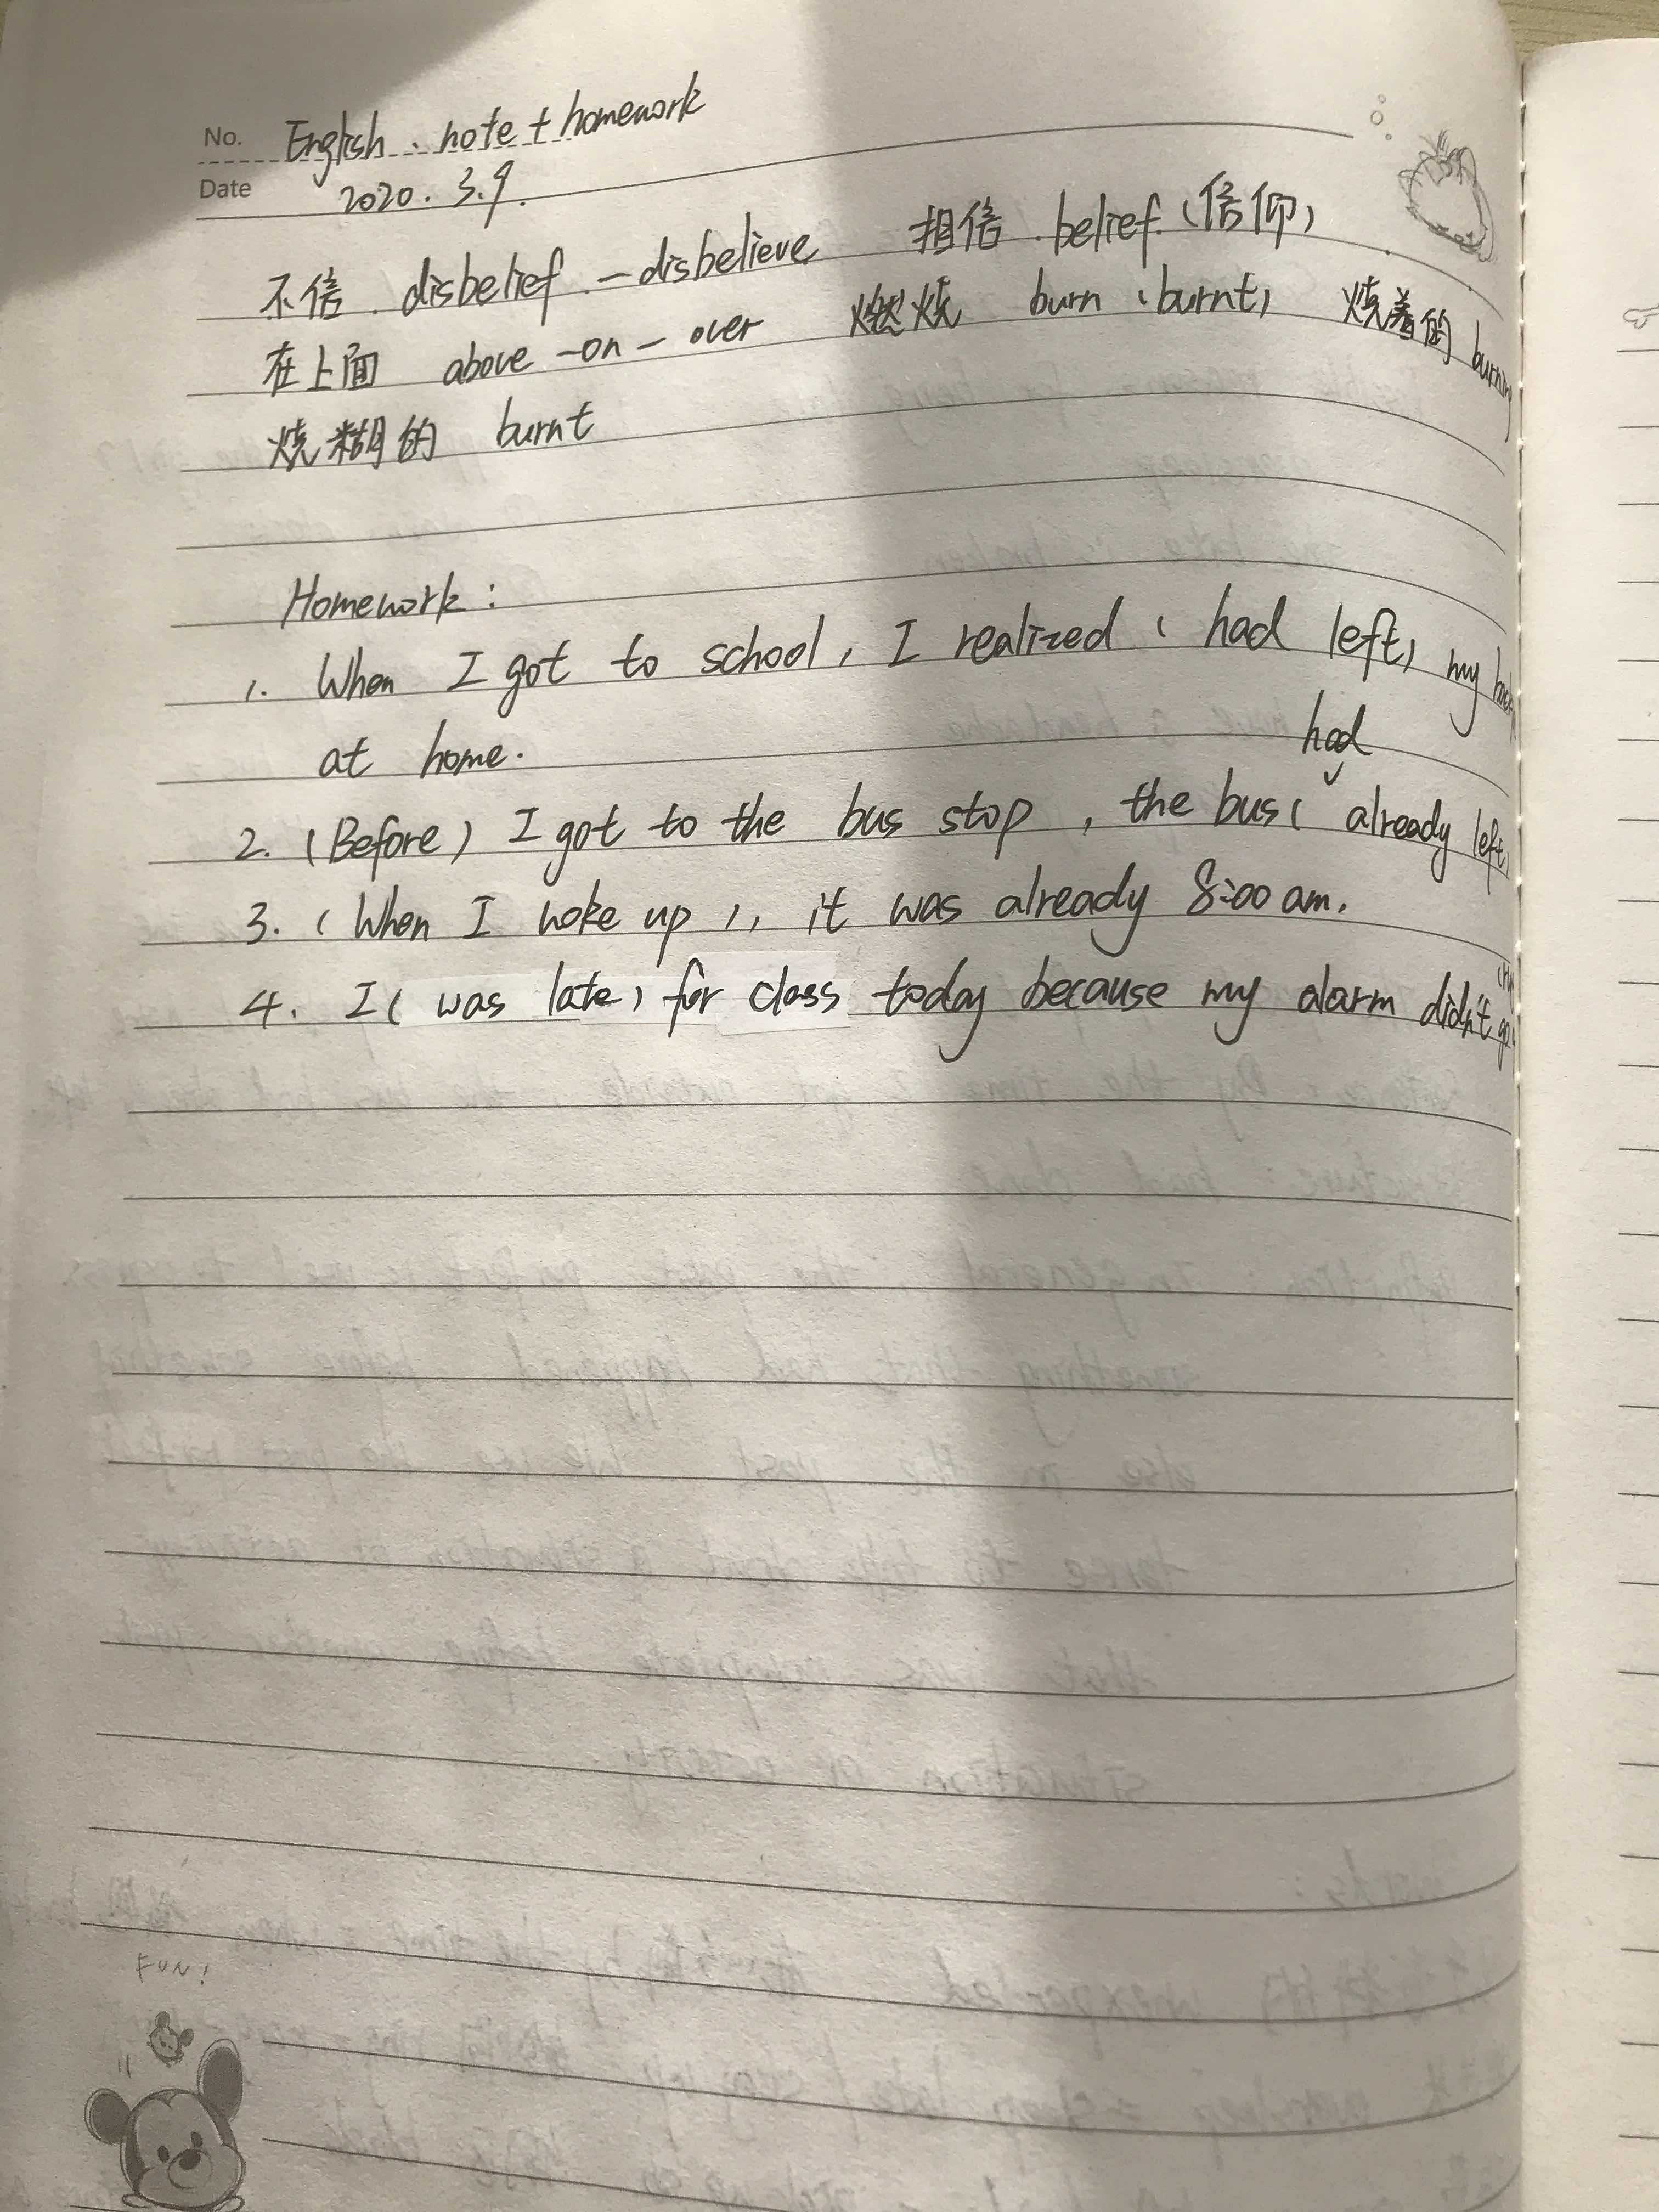 No. English. note + homework
Date 2020. 3.9.
不信 disbelief - disbelieve 相信 belief (信仰)
在上面 above - on - over 燃烧 burn (burnt) 烧着的 burning
烧糊的 burnt
Homework:
1. When I got to school, I realized (had left) my
at home.
had
2. (Before) I got to the bus stop, the bus ( already left)
3. (When I woke up), it was already 8:00 am.
4. I (was late) for class today because my alarm didn't
FUN!